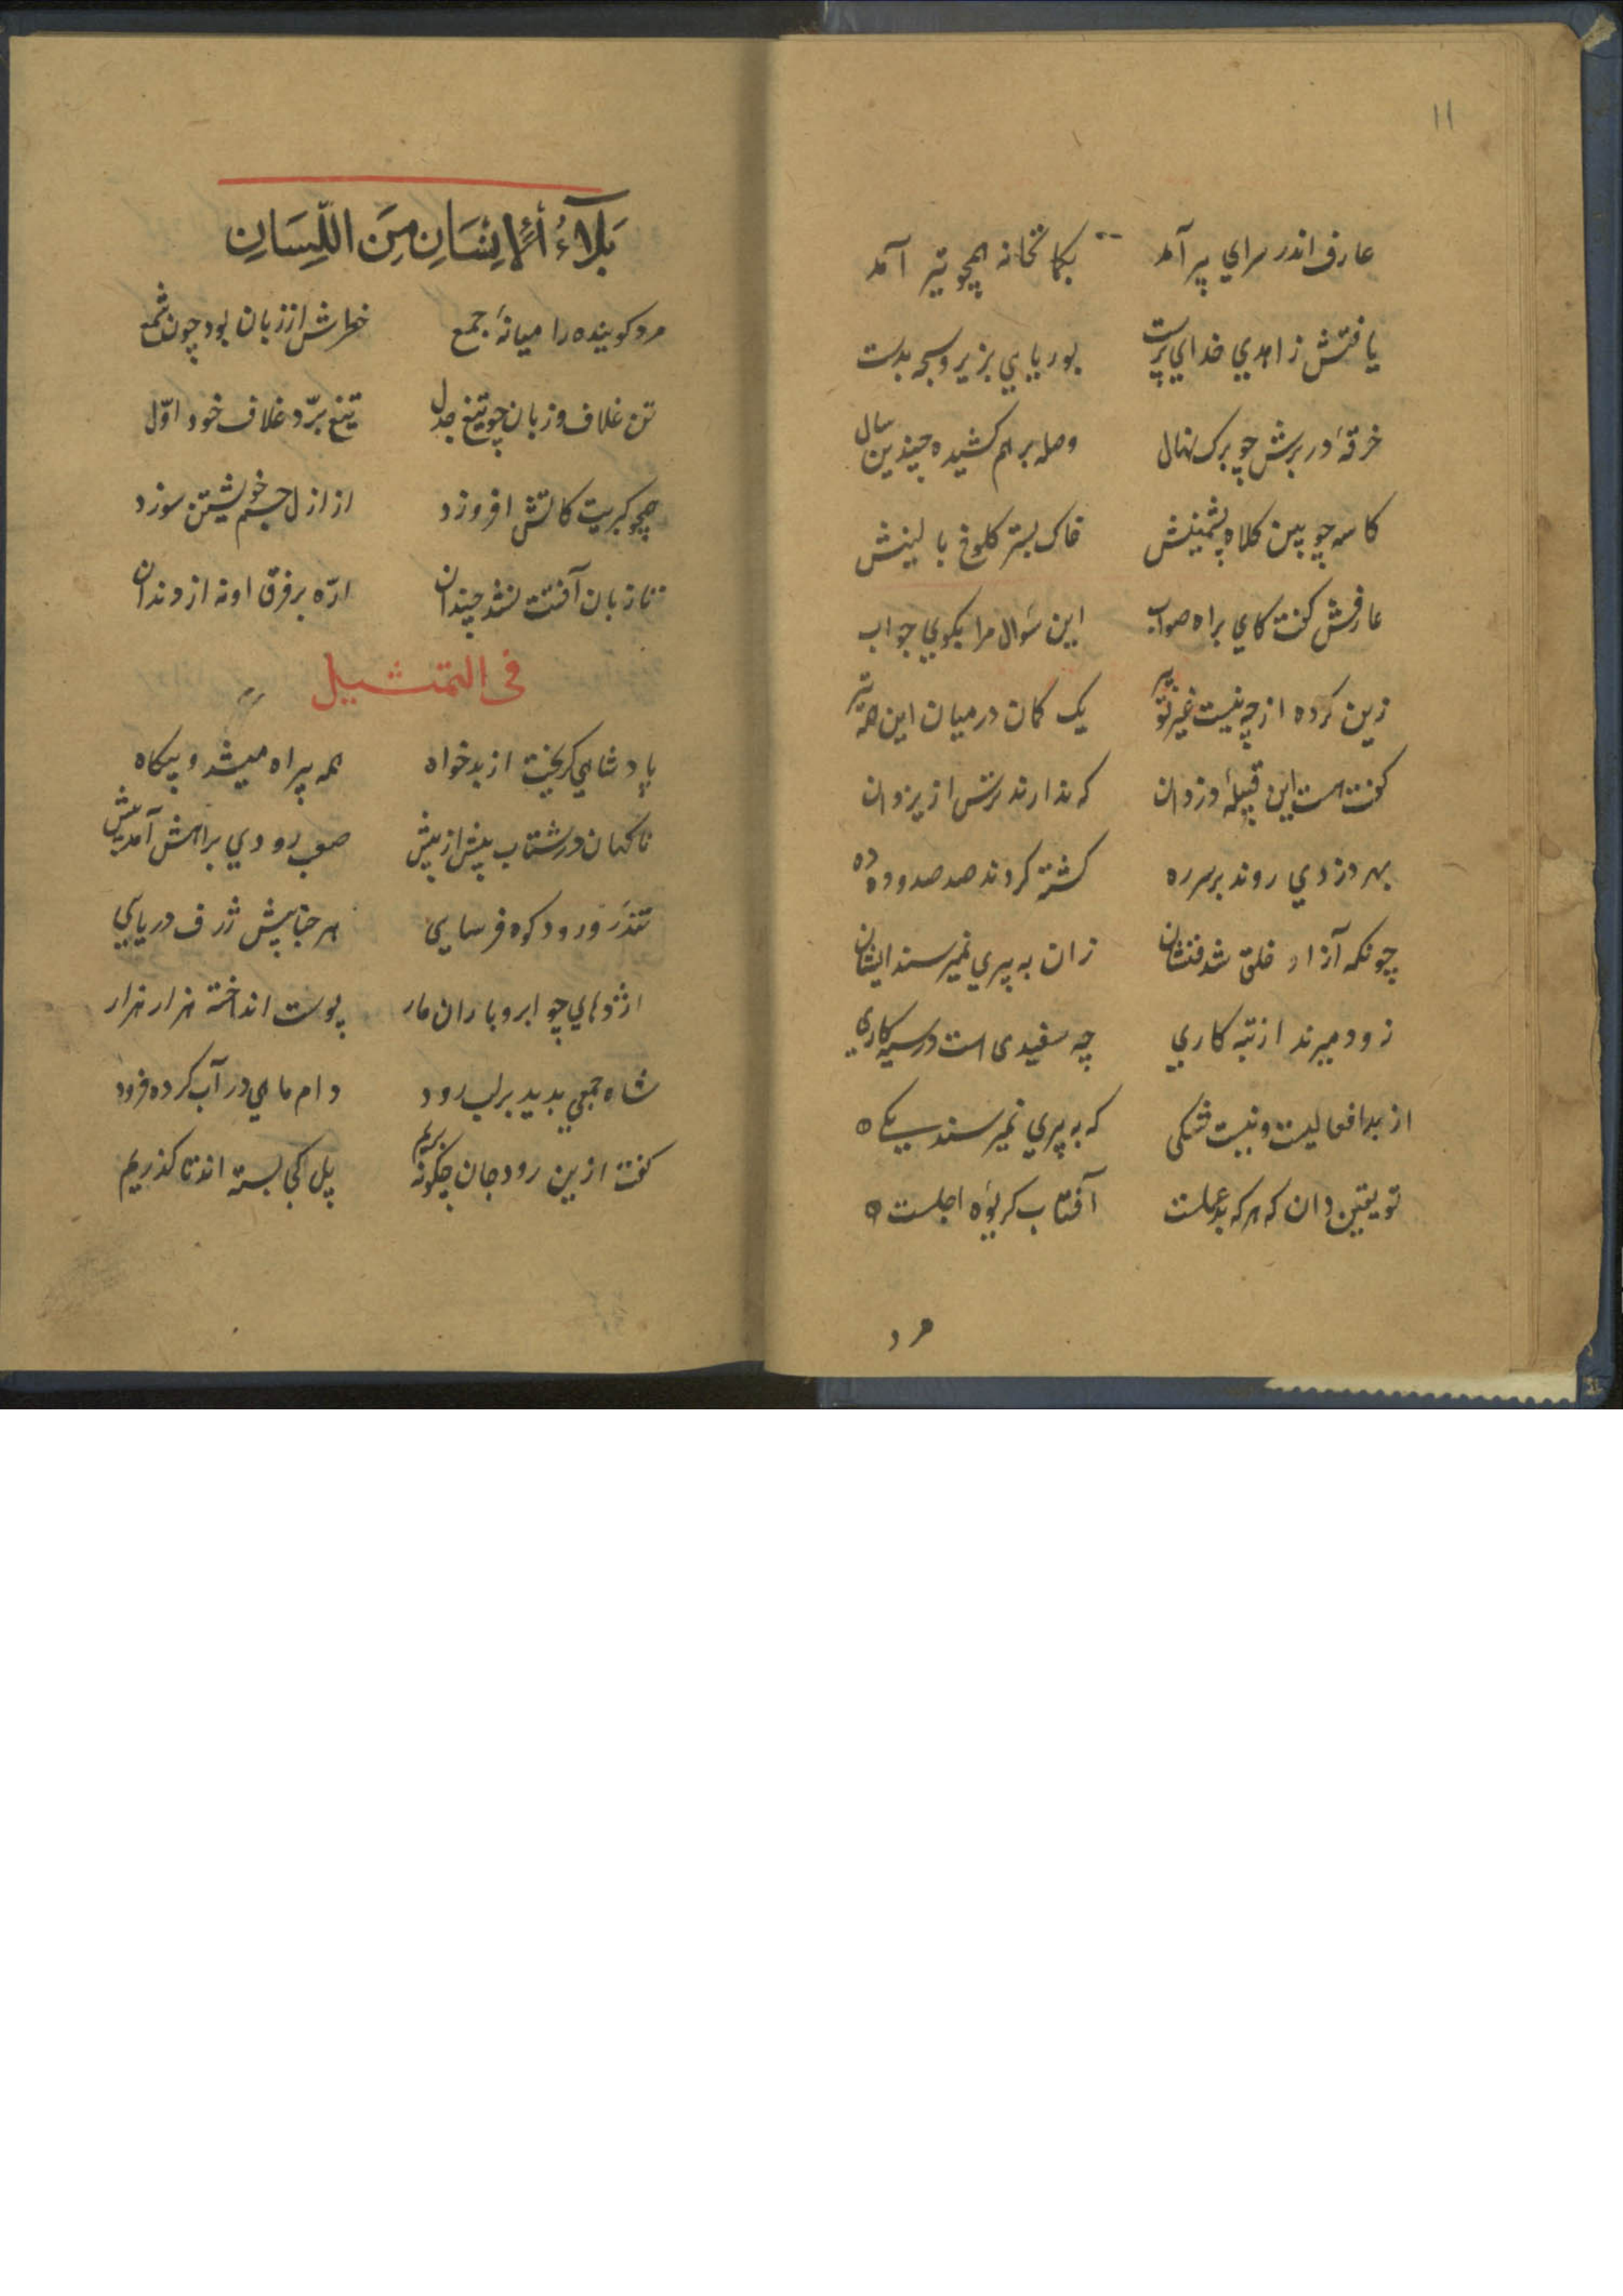 ۱۱
عارف اندر سراي پير آمد بکمانخانه همچو تير آمد
يافتش زاهدي خداي پرست بوريايي بزير و سبحه بدست
خرقهٔ در برش چو برک نهال وصله بر هم کشيده چندين سال
کاسه چوبين کلاه پشمينش خاک بستر کلوخ بالينش
عارفش کفت کاي براه صواب اين سؤال مرا بکوي جواب
زين کرده از چه نيست غير تو پير يک کمان در ميان اين همه تير
کفت هست اين قبيلهٔ دزدان که ندارند ترس از يزدان
بهر دزدي روند بر سر ره کشته کردند صد صد و ده ده
چونکه آزار خلق شد فنشان زان به پيري نميرسند ايشان
زود ميرند از تبه کاري چه سفيدی است در سيه کاري
از بد افعاليست و نيست شکی که به پيري نميرسند يکے
تو يقين دان که هر که بد عملست آفتاب کريوهٔ اجلست
مرد
بَلَآءُ اْلإِنسَانِ مِنَ اللِّسَانِ
مرد کوينده را ميانهٔ جمع خطرش از زبان بود چون شمع
تن غلاف و زبان چو تيغ جدل تيغ برّد غلاف خود اوّل
همچو کبريت کاتش افروزد از ازل جسم خويشتن سوزد
تا زبان آفتت نشد چندان ارّه بر فرق او نه از دندان
فی التمثـــيل
پادشاهي کريخت از بدخواه همه بيراه ميشد و بيکاه
ناکهان در شتاب بيش از پيش صعب رودي براهش آمد پيش
تند رو رود کوه فرسايی هر حبابش ژرف دريايي
اژدهاي چو ابر و باران مار پوست انداخته هزار هزار
شاه جمعي بديد بر لب رود دام ماهي در آب کرده فرود
کفت ازين رود جان چکونه بريم پل کجا بسته اند تا کذريم